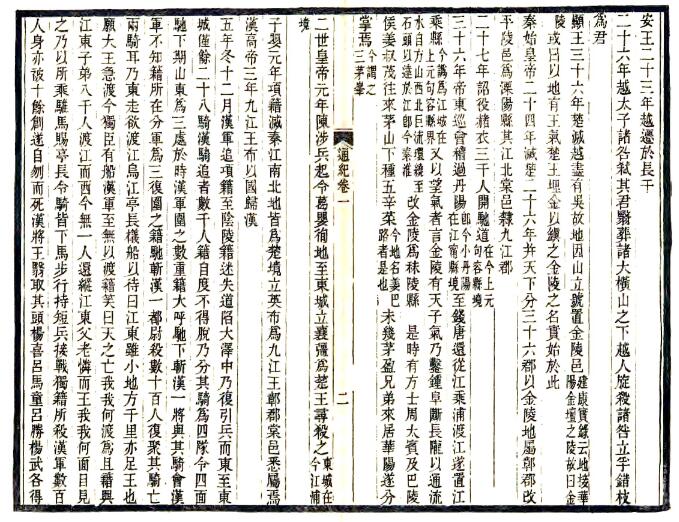 安王二十三年越遷於長干
二十六年越太子諸咎弑其君翳葬諸大橫山之下越人旋殺諸咎立孚錯枝
爲君
顯王三十六年楚滅越盡有吳故地因山立號置金陵邑建康實錄云地接華陽金壇之陵故曰金
陵或曰以地有王氣楚王埋金以鎭之金陵之名實始於此
秦始皇帝二十四年滅楚二十六年幷天下分三十六郡以金陵地屬鄣郡改
平陵邑爲溧陽縣其江北棠邑隸九江郡
二十七年詔役赭衣三千人開馳道在今上元句容縣境
三十六年帝東巡會稽過丹陽在今小丹陽江甯縣境至錢唐還從江乘浦渡江遂置江
乘縣今謂爲江城在上元句容縣界又以望氣者言金陵有天子氣乃鑿鍾阜斷長隴以通流
水自方山西北巨流環繞至石頭以達於江卽今秦淮改金陵爲秣陵縣 是時有方士周太賓及巴陵
侯姜叔茂往來茅山下種五辛菜今地名姜巴路者是也未幾茅盈兄弟來居華陽遂分
掌焉今謂之三茅峯
通紀卷一 二
二世皇帝元年陳涉兵起令葛嬰徇地至東城立襄彊爲楚王尋殺之東城在今江浦
境
子嬰元年項籍滅秦江南北地皆爲楚壤立英布爲九江王鄣郡棠邑悉屬焉
漢高帝三年九江王布以國歸漢
五年冬十二月漢軍追項籍至陰陵籍迷失道陷大澤中乃復引兵而東至東
城僅餘二十八騎漢騎追者數千人籍自度不得脫乃分其騎爲四隊令四面
馳下期山東爲三處於時漢軍圍之數重籍大呼馳下斬漢一將與其騎會漢
軍不知籍所在分軍爲三復圍之籍馳斬漢一都尉殺數十百人復聚其騎亡
兩騎耳乃東走欲渡江烏江亭長檥船以待曰江東雖小地方千里亦足王也
願大王急渡今獨臣有船漢軍至無以渡籍笑曰天之亡我我何渡爲且籍與
江東子弟八千人渡江而西今無一人還縱江東父老憐而王我我何面目見
之乃以所乘騅馬賜亭長令騎皆下馬步行持短兵接戰獨籍所殺漢軍數百
人身亦被十餘創遂自刎而死漢將王翳取其頭楊喜呂馬童呂勝楊武各得